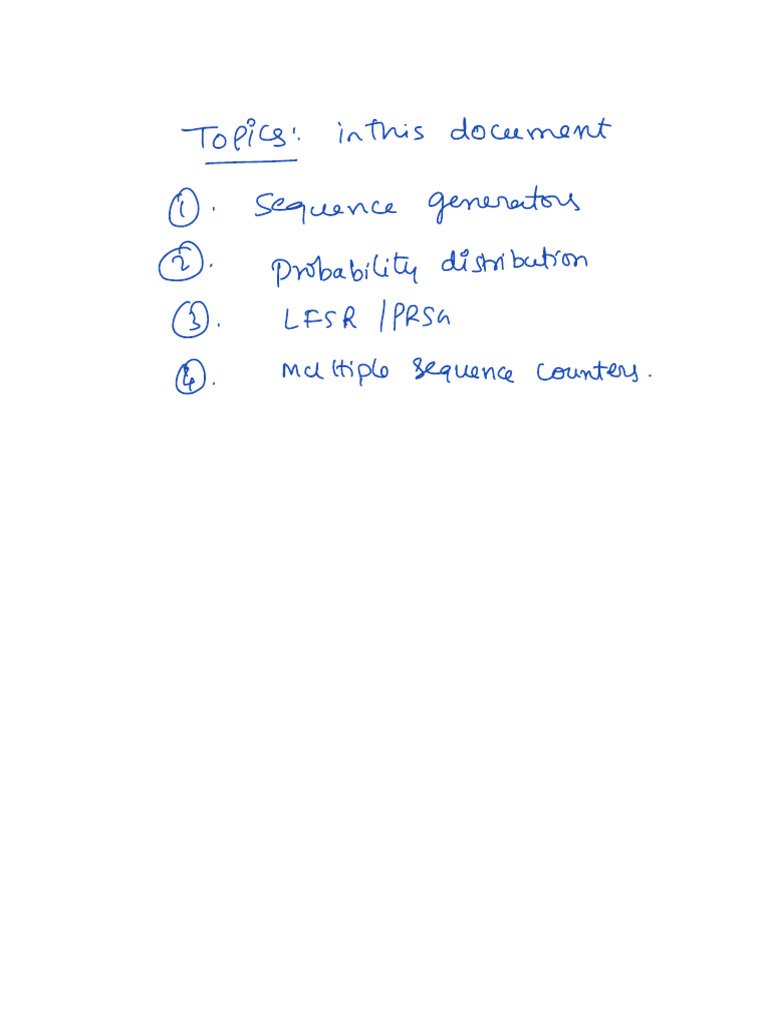 Topics: in this document
1. Sequence generators
2. Probability distribution
3. LFSR / PRSG
4. Multiple sequence counters.